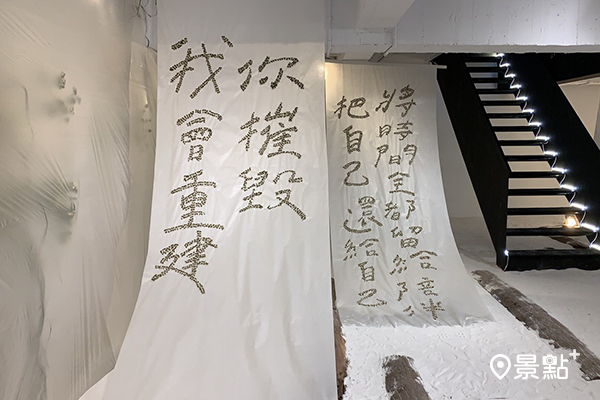 你摧毀
我會重建
將時間全都留給陪伴
把自己還給自己
景點+